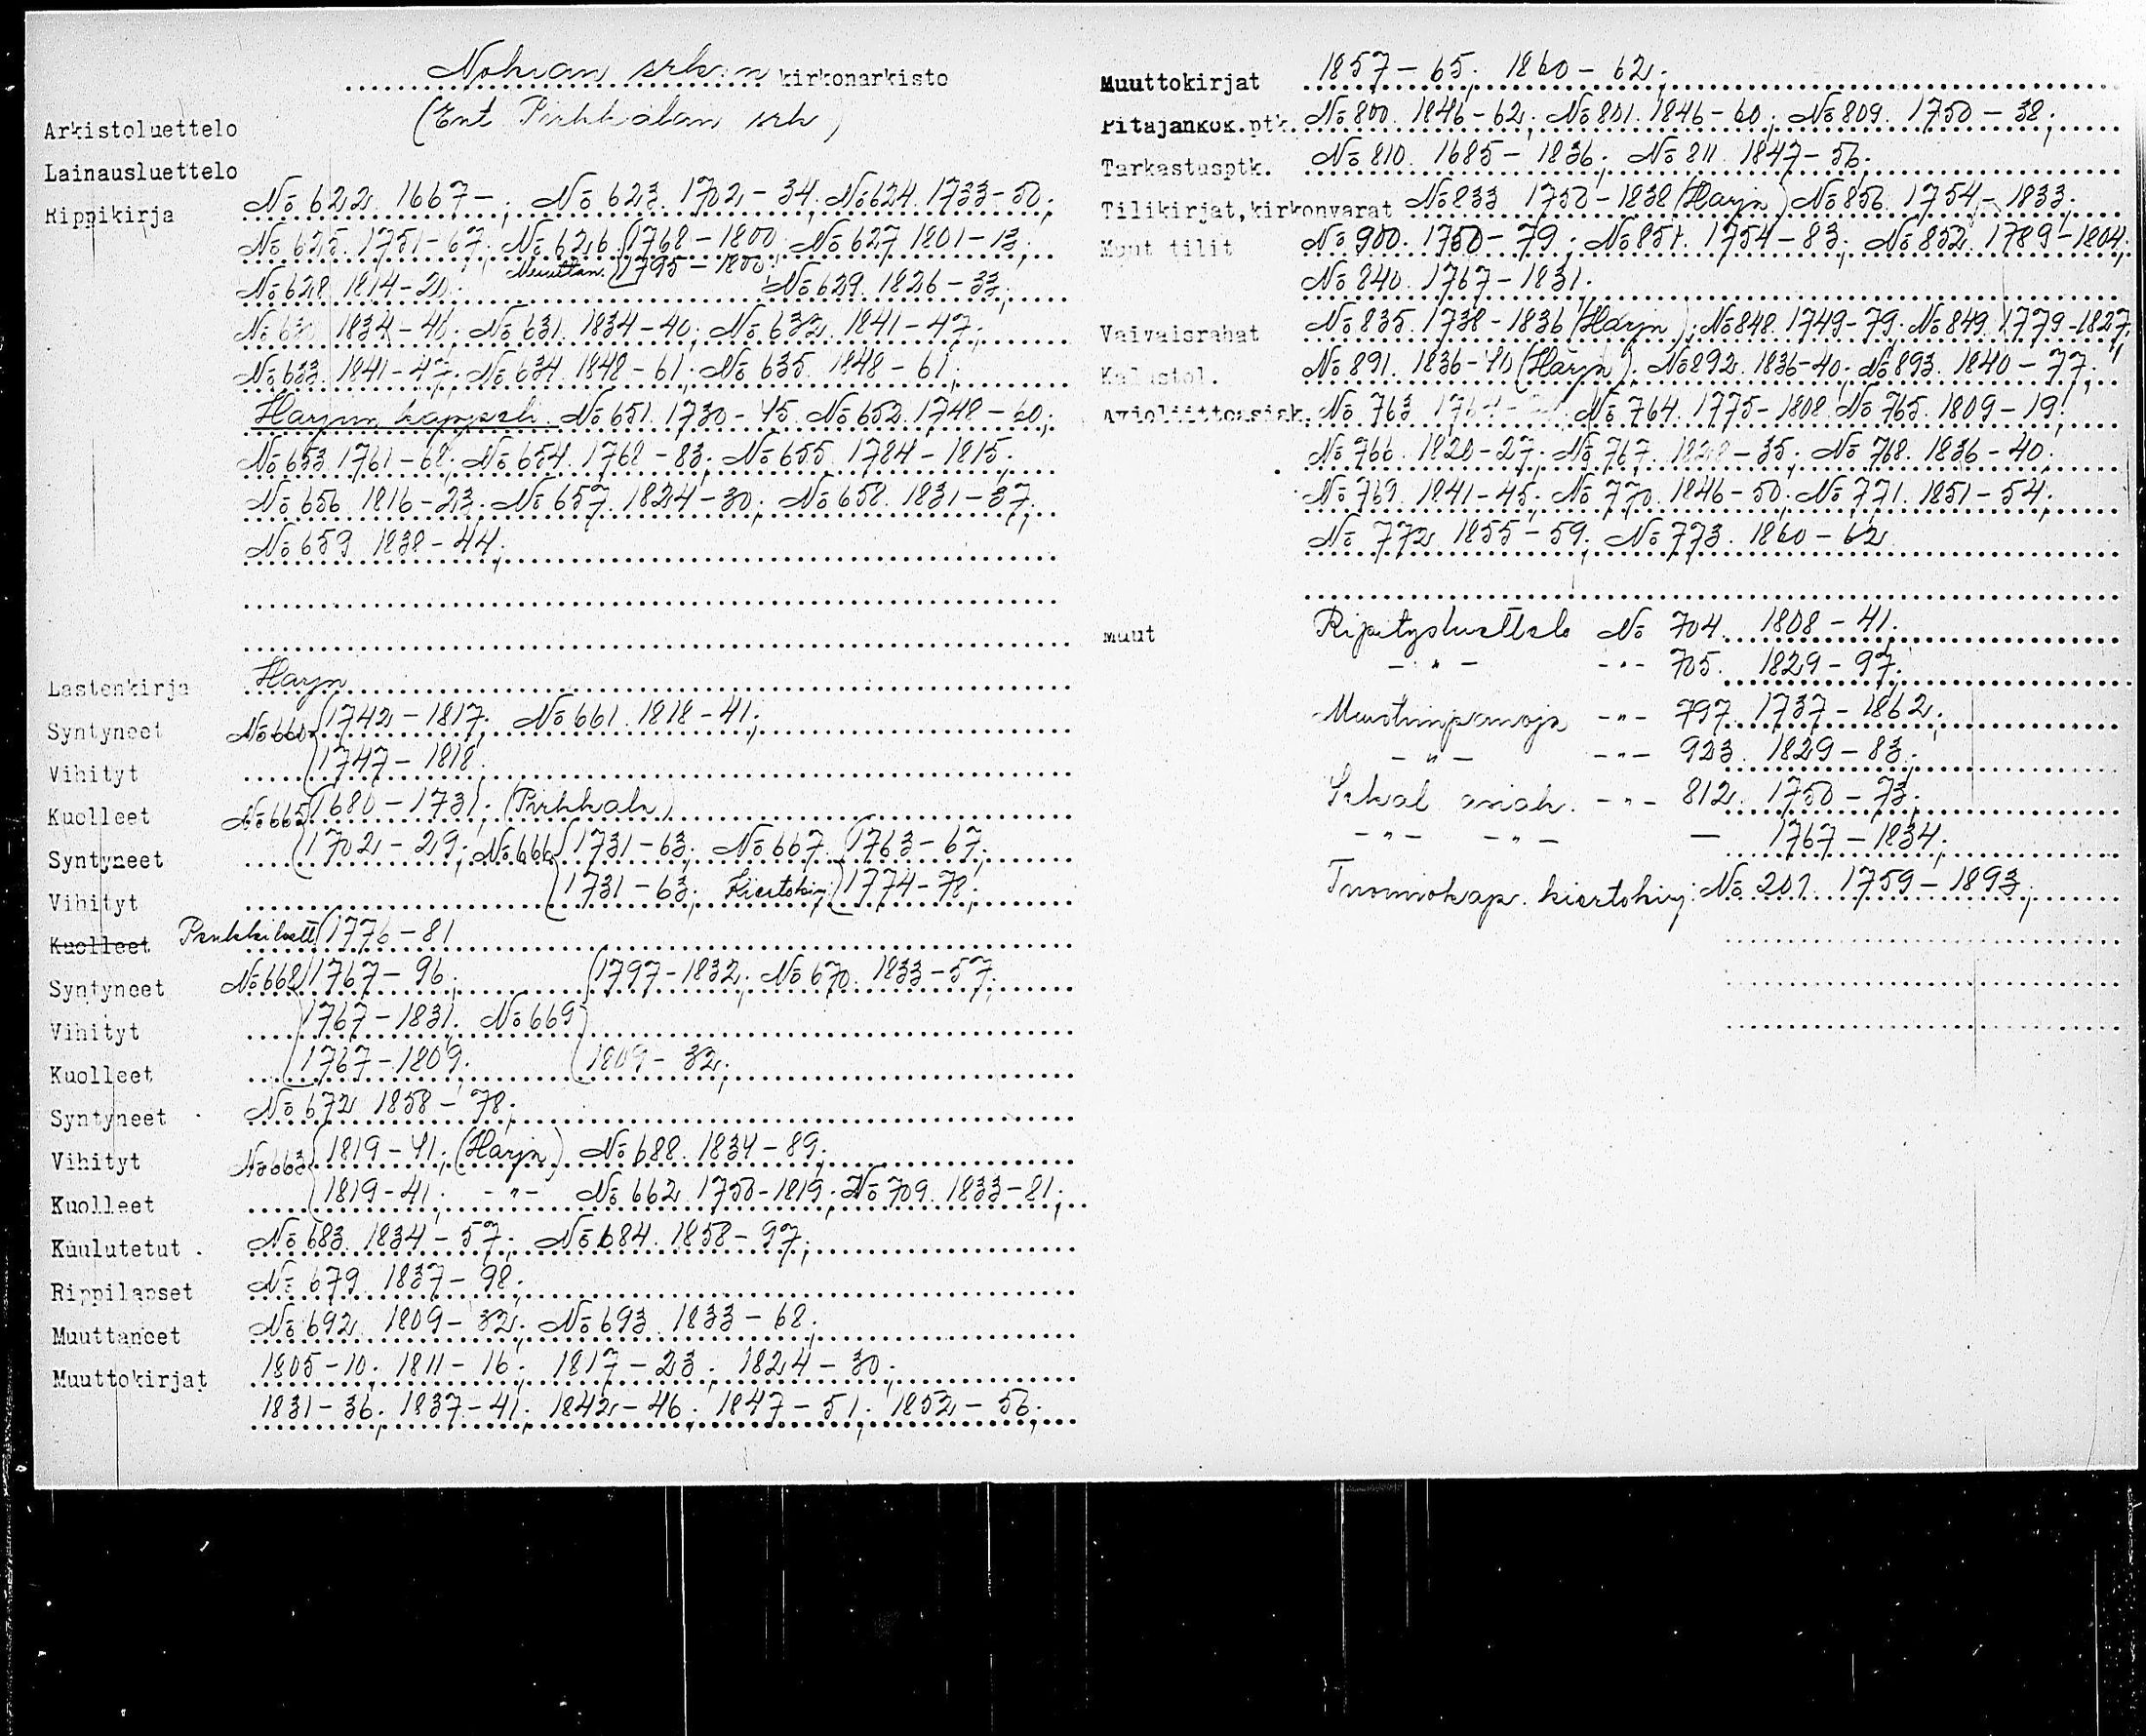 Nokian srk:n kirkonarkisto
(Ent. Pirkkalan srk)
Arkistoluettelo
Lainausluettelo
Rippikirja No 622. 1667-; No 623. 1702-34; No 624. 1733-50;
No 625. 1751-67; No 626. 1768-1800; No 627. 1801-13;
Muuttan. 1795-1800;
No 628. 1814-20; No 629. 1826-33;
1834-40; No 631. 1834-40; No 632. 1841-47;
No 633. 1841-47; No 634. 1848-61; No 635. 1848-61;
Harjun kappeli. No 651. 1730-45. No 652. 1748-60;
No 653. 1761-68; No 654. 1768-83; No 655. 1784-1815;
No 656. 1816-23; No 657. 1824-30; No 658. 1831-37;
No 659. 1838-44;
Lastenkirja Harjn
Syntyneet No 660 1742-1817; No 661. 1818-41;
Vihityt 1747-1818;
Kuolleet No 665 1686-1731; (Pirkkala)
Syntyneet 1702-29; No 666 1731-63; No 667. 1763-67;
Vihityt 1731-63; Kiertokirj. 1774-78;
Kuolleet Penkkiluett. 1776-81
Syntyneet No 668 1767-96; 1797-1832; No 670. 1833-57;
Vihityt 1767-1831. No 669
Kuolleet 1767-1809. 1809-32;
Syntyneet No 672 1858-78;
Vihityt No 663 1819-41; (Harjn) No 688. 1834-89;
Kuolleet 1819-41; -"- No 662. 1750-1819; No 709. 1833-81;
Kuulutetut No 683. 1834-57; No 684. 1858-97;
Rippilapset No 679. 1837-98;
Muuttaneet No 692. 1809-32; No 693. 1833-68;
Muuttokirjat 1805-10; 1811-16; 1817-23; 1824-30;
1831-36; 1837-41; 1842-46; 1847-51; 1852-56;
Muuttokirjat 1857-65; 1860-62;
Pitäjänkok.ptk. No 800. 1846-62; No 801. 1846-60; No 809. 1750-38;
Tarkastusptk. No 810. 1685-1836; No 811. 1847-56;
Tilikirjat, kirkonvarat No 833 1750-1838 (Harjn) No 856. 1754-1833;
Muut tilit No 900. 1750-79; No 851. 1754-83; No 852. 1789-1804;
No 840. 1767-1831.
Vaivaisrahat No 835. 1738-1836 (Harjn); No 848. 1749-79; No 849. 1779-1827;
Kalustol. No 891. 1836-40 (Harjn); No 892. 1836-40; No 893. 1840-77;
Avioliittoasiak. No 763 No 764. 1775-1808. No 765. 1809-19;
No 766. 1820-27; No 767. 1828-35; No 768. 1836-40;
No 769. 1841-45; No 770. 1846-50; No 771. 1851-54;
No 772. 1855-59; No 773. 1860-62
Muut Ripitysluettelo No 704. 1808-41;
-"- -"- 705. 1829-97;
Muistiinpanoja -"- 797. 1737-1862;
-"- -"- 923. 1829-83;
Sekal. asiak. -"- 812. 1750-73;
-"- -"- - 1767-1834;
Tuomiokap. kiertokirj: No 201. 1759-1893;